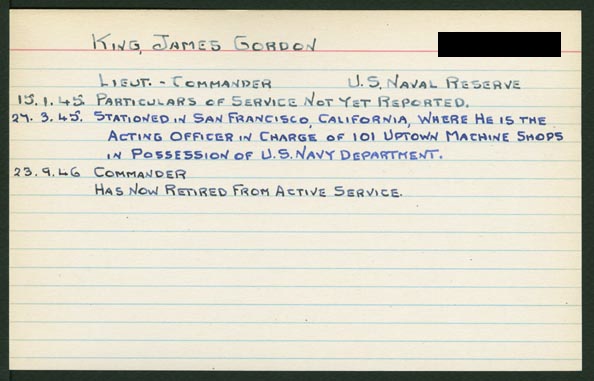 KING, JAMES GORDON
LIEUT. - COMMANDER U.S. NAVAL RESERVE
15.1.45. PARTICULARS OF SERVICE NOT YET REPORTED.
27.3.45. STATIONED IN SAN FRANCISCO, CALIFORNIA, WHERE HE IS THE
ACTING OFFICER IN CHARGE OF 101 UPTOWN MACHINE SHOPS
IN POSSESSION OF U.S. NAVY DEPARTMENT.
23.9.46 COMMANDER
HAS NOW RETIRED FROM ACTIVE SERVICE.